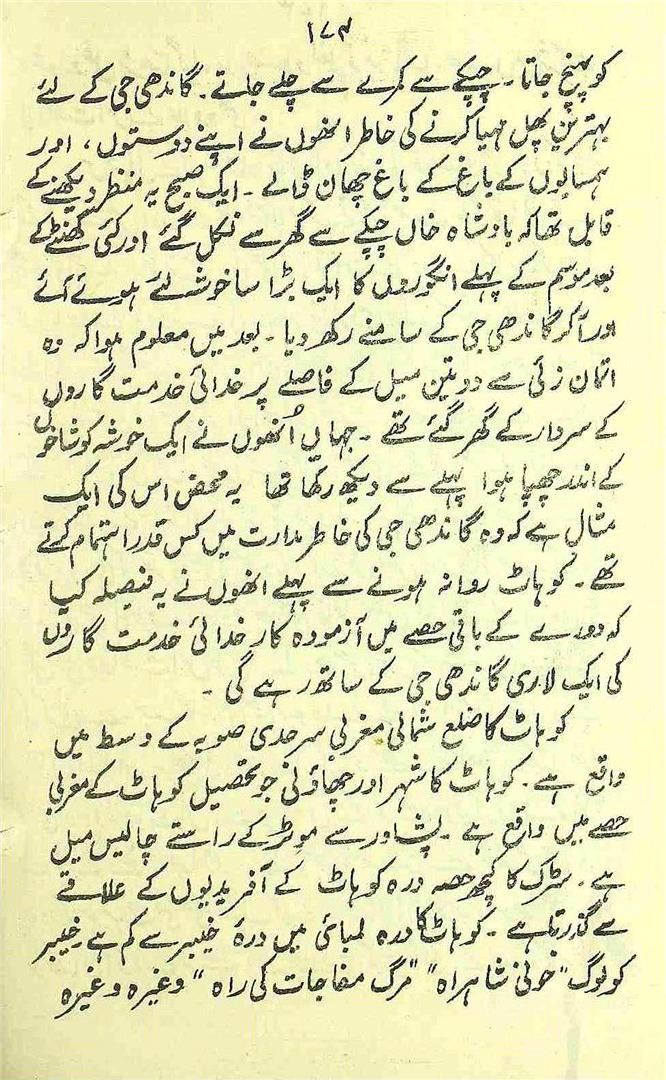 ۱۷۴
کو پہنچ جاتا۔ چپکے سے کمرے سے چلے جاتے۔ گاندھی جی کے لئے
بہترین پھل مہیا کرنے کی خاطر انھوں نے اپنے دوستوں، اور
ہمسایوں کے باغ کے باغ چھان ڈالے۔ ایک صبح یہ منظر دیکھنے کے
قابل تھا کہ بادشاہ خاں چپکے سے گھر سے نکل گئے اور کئی گھنٹے کے
بعد موسم کے پہلے انگوروں کا ایک بڑا سا خوشہ لئے ہوئے آئے
اور آکر گاندھی جی کے سامنے رکھ دیا۔ بعد میں معلوم ہوا کہ وہ
اتمان زئی سے دو تین میل کے فاصلے پر خدائی خدمت گاروں
کے سردار کے گھر گئے تھے۔ جہاں اُنھوں نے ایک خوشہ کو شاخوں
کے اندر چھپا ہوا پہلے سے دیکھ رکھا تھا یہ محض اس کی ایک
مثال ہے کہ وہ گاندھی جی کی خاطر مدارت میں کس قدر اہتمام کرتے
تھے۔ کوہاٹ روانہ ہونے سے پہلے انھوں نے یہ فیصلہ کیا
کہ دورے کے باقی حصے میں آزمودہ کار خدائی خدمت گاروں
کی ایک لاری گاندھی جی کے ساتھ رہے گی۔
کوہاٹ کا ضلع شمالی مغربی سرحدی صوبہ کے وسط میں
واقع ہے۔ کوہاٹ کا شہر اور چھاؤنی جو تحصیل کوہاٹ کے مغربی
حصے میں واقع ہے۔ پشاور سے موٹر کے راستے چالیس میل
ہے۔ سڑک کا کچھ حصہ درہ کوہاٹ کے آفریدیوں کے علاقے
سے گذرتا ہے۔ کوہاٹ کا درہ لمبائی میں درۂ خیبر سے کم ہے۔ خیبر
کو لوگ "خونی شاہراہ" "مرگ مفاجات کی راہ" وغیرہ وغیرہ